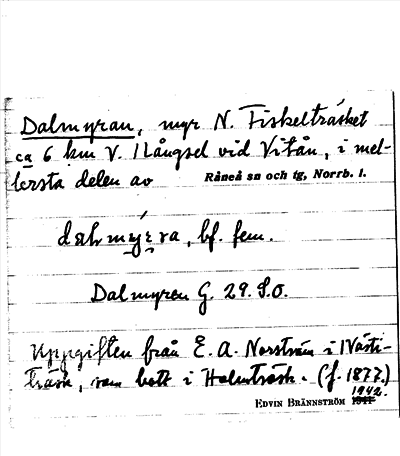 Dalmyran, myr N. Fiskelträsket
ca 6 km V. Långsel vid Vitån, i mel-
lersta delen av Råneå sn och tg, Norrb. l.
bf. fem.
Dalmyren G. 29. S.O.
Uppgiften från E. A. Norström i Nästi-
träsk, som bott i Holmträsk. (f. 1877.)
1942.
EDVIN BRÄNNSTRÖM 1941